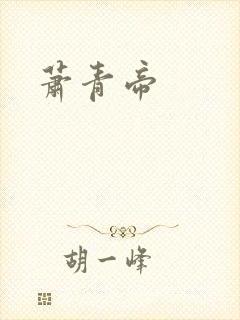 萧青帝
胡一峰